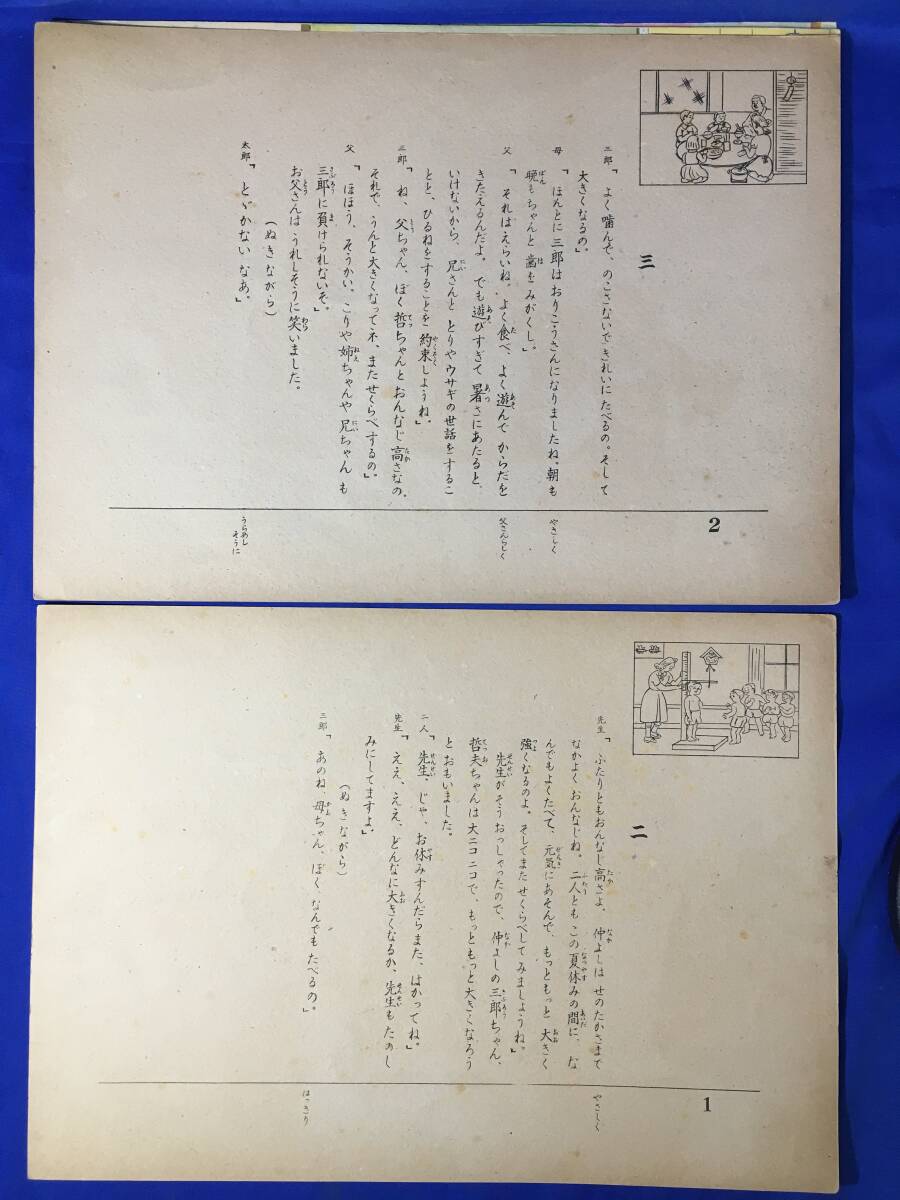 三
三郎「よく噛んで、のこさないできれいにたべるの。そして
大きくなるの」。
母「ほんとに三郎はおりこうさんになりましたね。朝も
晩もちゃんと歯をみがくし」。
父「それはえらいね。よく食べ、よく遊んでからだを
きたえるんだよ。でも遊びすぎて暑さにあたると、
いけないから、兄さんととりやウサギの世話をするこ
とと、ひるねをすることを約束しようね」
三郎「ね、父ちゃん、ぼく哲ちゃんとおんなじ高さなの。
それで、うんと大きくなってネ、またせくらべするの」。
父「ほほう、そうかい。こりや姉ちゃんや兄ちゃんも
三郎に負けられないぞ」。
お父さんはうれしそうに笑いました。
(ぬきながら)
太郎「とゞかないなあ」。
2
やさしく
父さんらしく
うらめし
そうに
二
先生「ふたりともおんなじ高さよ、仲よしはせのたかさまで
なかよくおんなじね。二人ともこの夏休みの間に、な
んでもよくたべて、元気にあそんで、もっともっと大きく
強くなるのよ。そしてまたせくらべしてみましようね」
先生がそうおっしゃったので、仲よしの三郎ちゃん、
哲夫ちゃんは大ニコニコで、もっともっと大きくなろう
とおもいました。
二人「先生、じゃ、お休みすんだらまた、はかってね」
先生「ええ、ええ、どんなに大きくなるか、先生もたのし
みにしてますよ」
(ぬきながら)
三郎「あのね、母ちゃん、ぼく、なんでもたべるの」。
1
やさしく
はっきり